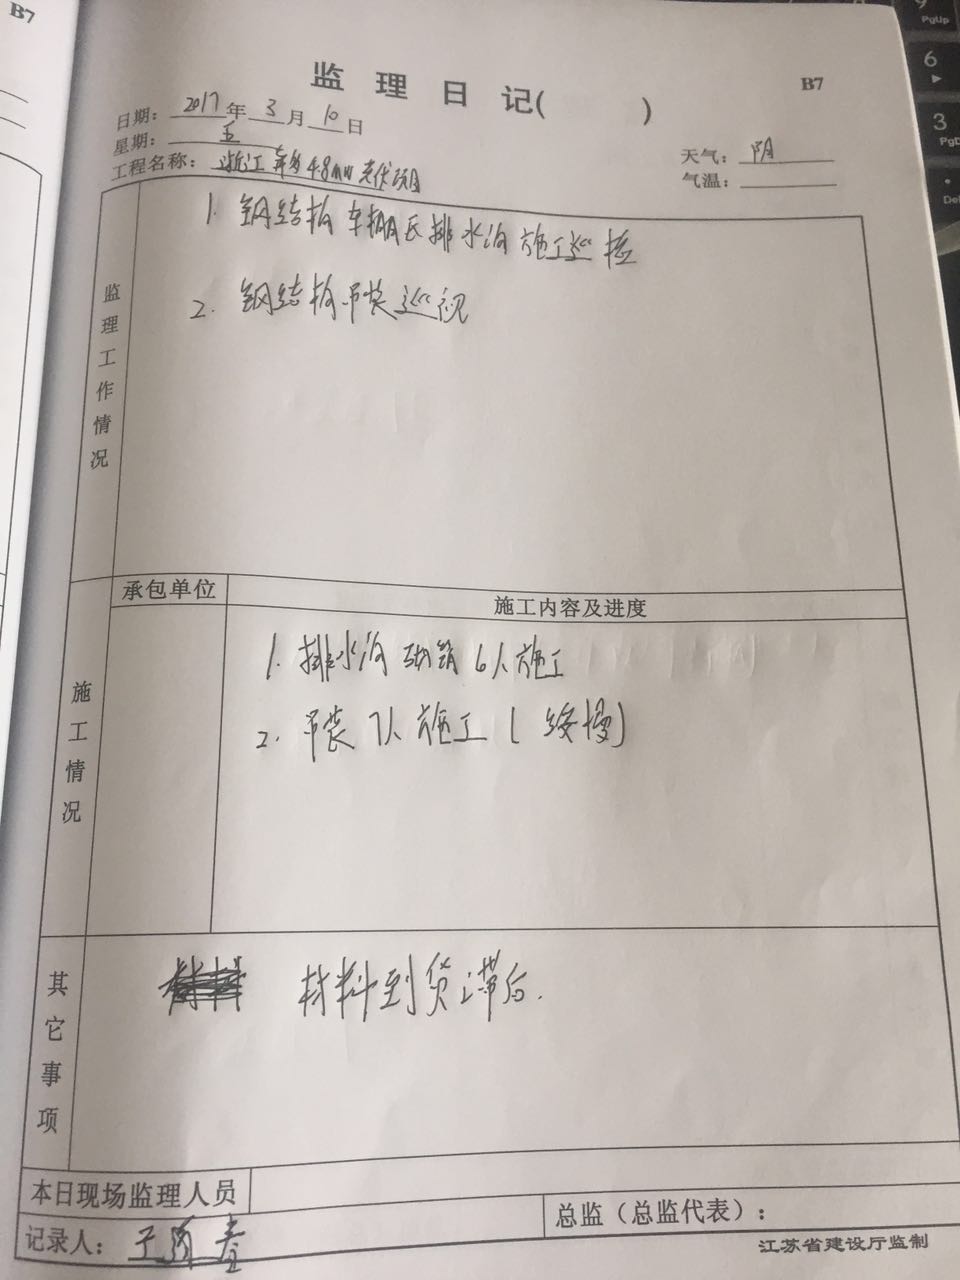 B7
B7
监理日记( )
日期: 2017年3月10日
星期: 五
天气: 阴
工程名称: 浙江 4.8MW光伏项目
气温:
监理工作情况
1. 钢结构车棚区排水沟施工巡检
2. 钢结构吊装巡视
承包单位
施工内容及进度
施工情况
1. 排水沟砌筑6人施工
2. 吊装7人施工(缓慢)
其它事项
材料到货滞后.
本日现场监理人员
总监(总监代表):
记录人: 于
江苏省建设厅监制
9
PgUp
6
3
PgD
Del